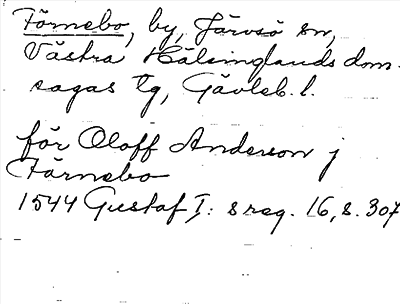 Förnebo, by, Järvsö sn,
Västra Hälsinglands dom-
sagas tg, Gävleb. l.
för Oloff Anderson j
Färnebo
1544 Gustaf I: s reg. 16, s. 307